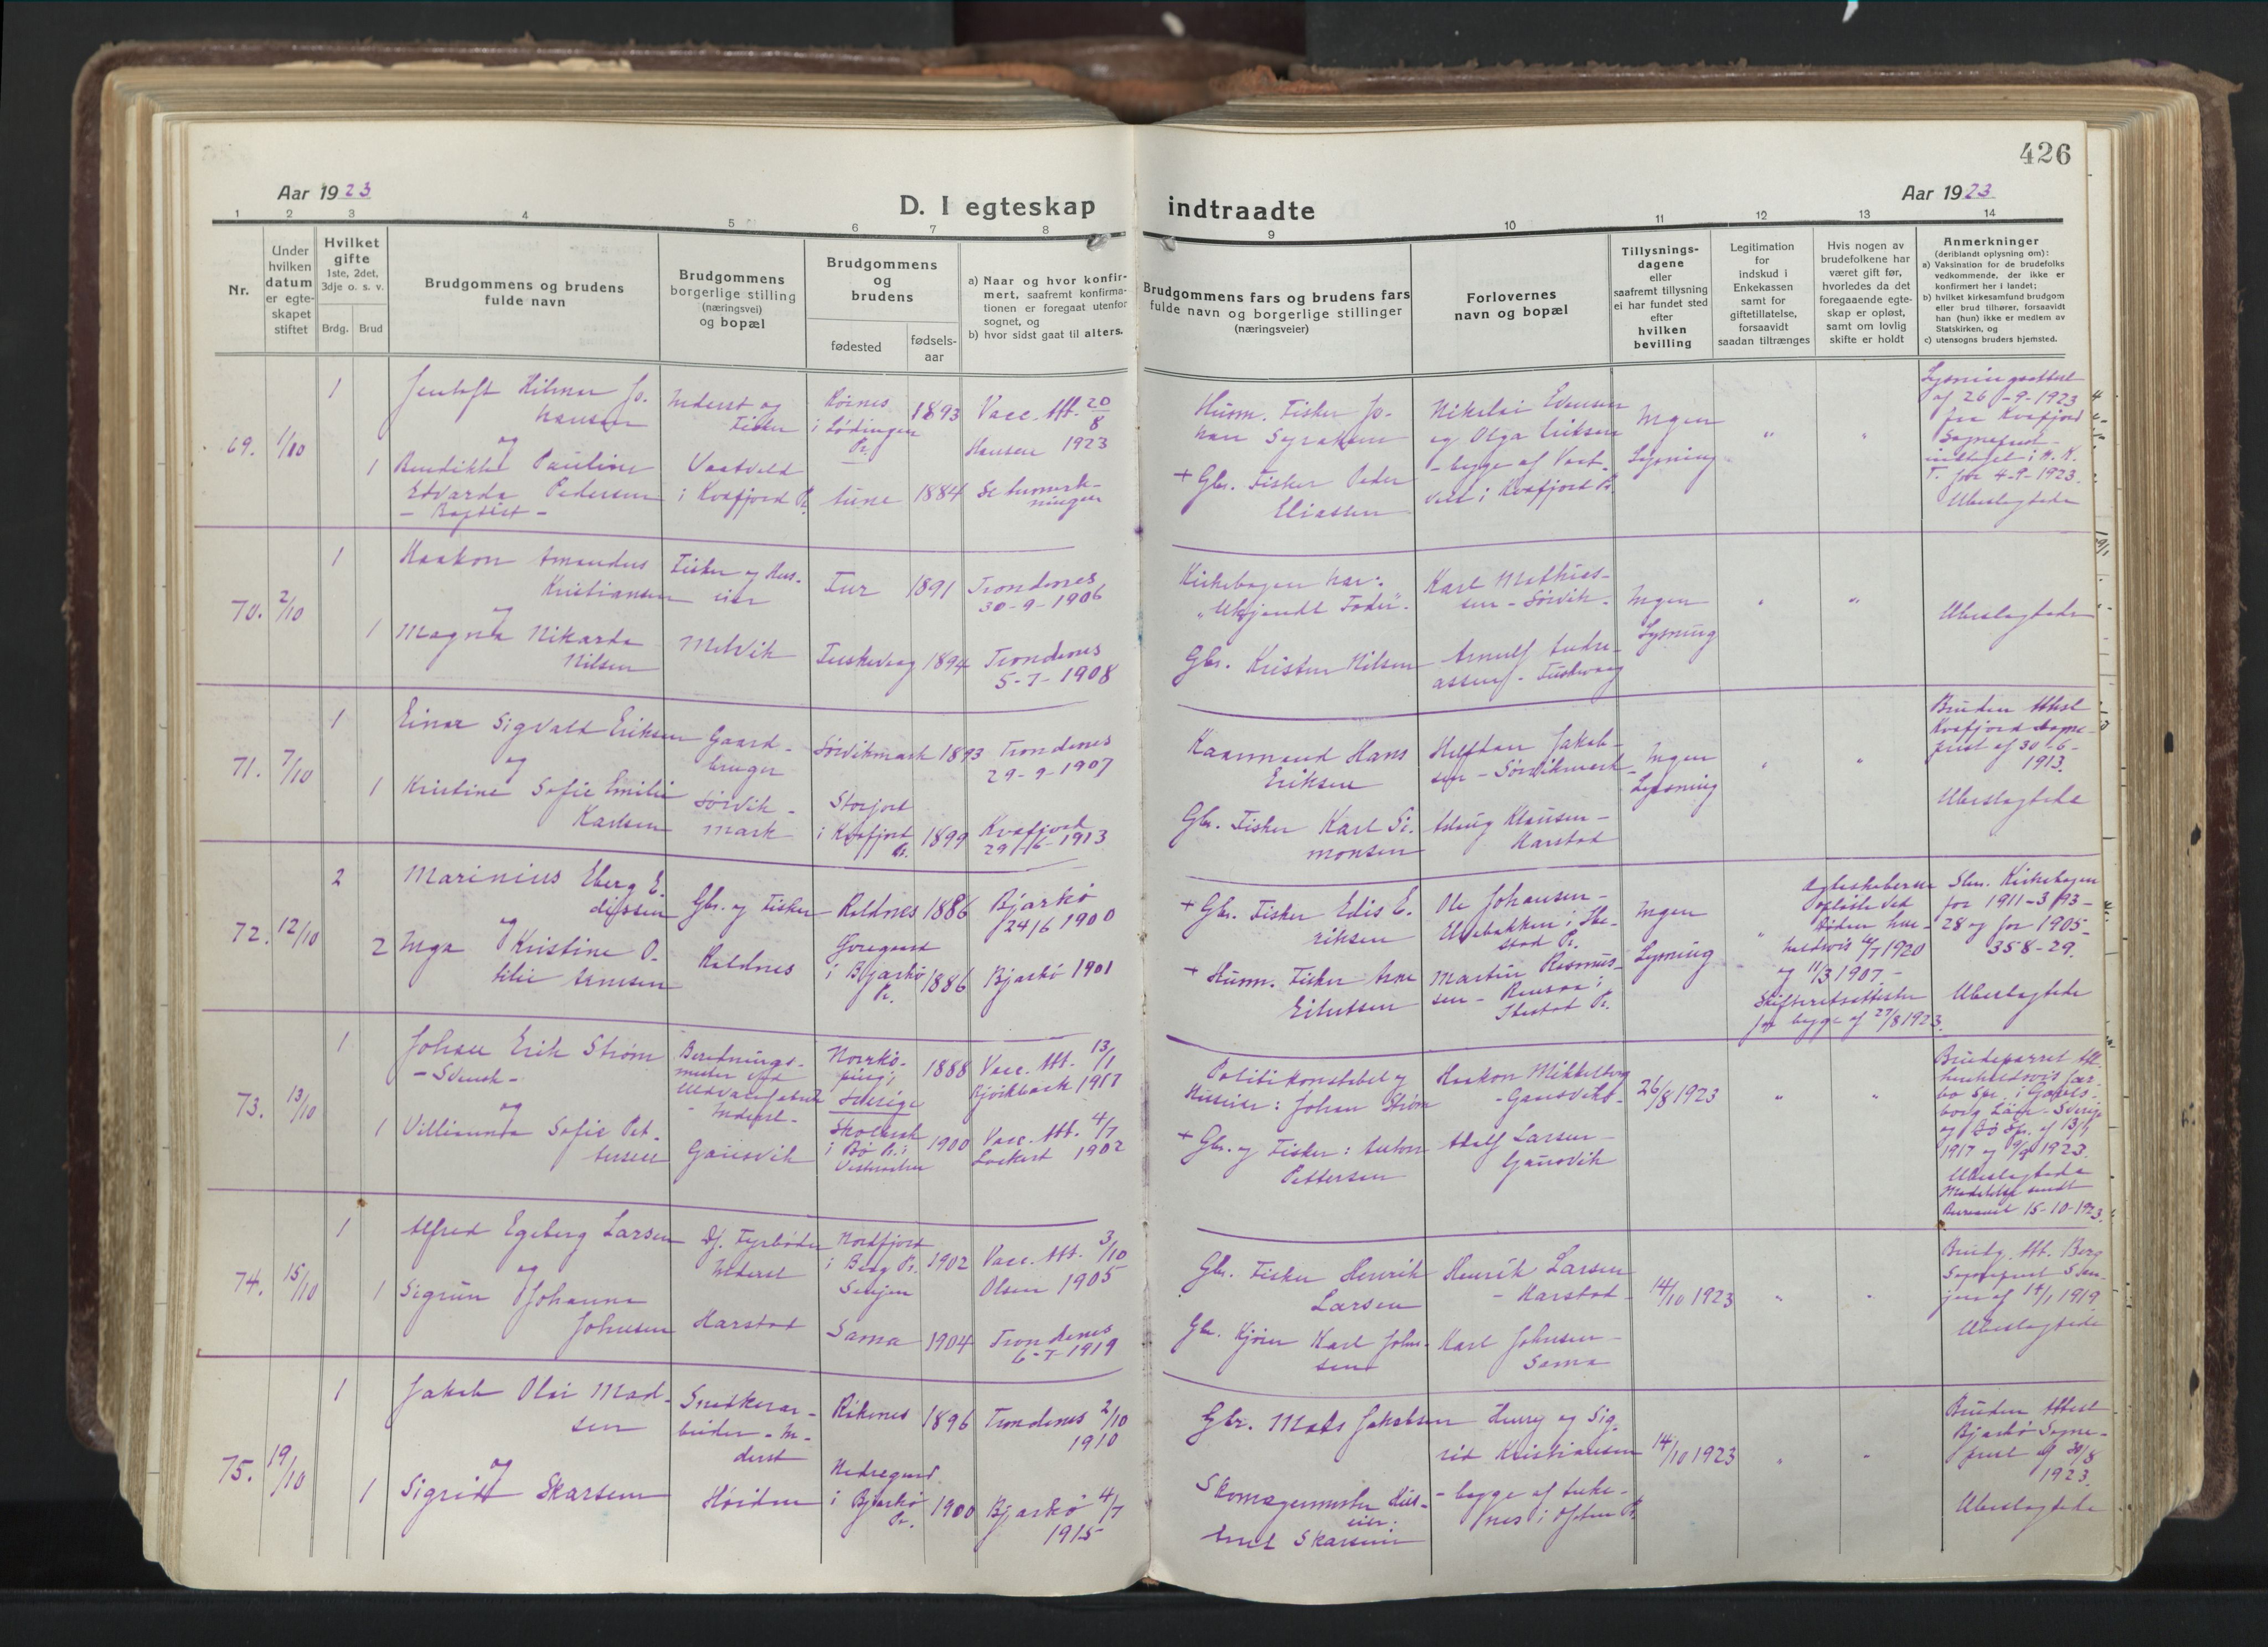 426
Aar 1923
D. I egteskap
indtraadte
Aar 1923
1 2 3 4 5 6 7 8 9 10 11 12 13 14
Nr.
Under
hvilken
datum
er egte-
skapet
stiftet
Hvilket
gifte
1ste, 2det,
3dje o. s. v.
Brdg. Brud
Brudgommens og brudens
fulde navn
Brudgommens
borgerlige stilling
(næringsvei)
og bopæl
Brudgommens
og
brudens
fødested
fødsels-
aar
a) Naar og hvor konfir-
mert, saafremt konfirma-
tionen er foregaat utenfor
sognet, og
b) hvor sidst gaat til alters.
Brudgommens fars og brudens fars
fulde navn og borgerlige stillinger
(næringsveier)
Forlovernes
navn og bopæl
Tillysnings-
dagene
eller
saafremt tillysning
ei har fundet sted
efter
hvilken
bevilling
Legitimation
for
indskud i
Enkekassen
samt for
giftetillatelse,
forsaavidt
saadan tiltrænges
Hvis nogen av
brudefolkene har
været gift før,
hvorledes da det
foregaaende egte-
skap er opløst,
samt om lovlig
skifte er holdt
Anmerkninger
(deriblandt oplysning om):
a) Vaksination for de brudefolks
vedkommende, der ikke er
konfirmert her i landet;
b) hvilket kirkesamfund brudgom
eller brud tilhører, forsaavidt
han (hun) ikke er medlem av
Statskirken, og
c) utensogns bruders hjemsted.
69. 1/10
1
1
Jentoft Hilmer Jo-
hansen
og
Benedikte Pauline
Edvarda Pedersen
- Baptist -
Inderst og
Fisker
i Kvæfjord P.
i Lødingen
Pr.
1893
1884
Vacc. Att. 20/8
Hansen 1923
Husm. Fisker Jo-
han
+ Gbr. Fisker Peder
Eliassen
Nikolai
og Olga
- begge af
i Kvæfjord Pr.
Ingen
Lysning
Lysningsattest
af 26-9-1923
fra Kvæfjord
Sogneprest
T. for 4-9-1923.
Ubeslægtede
70. 2/10
1
1
Haakon Amandus
Kristiansen
og
Magna Nikarda
Nilsen
Fisker og Hus-
eier
Melvik
1891
1894
Trondenes
30-9-1906
Trondenes
5-7-1908
Kirkebogen har:
"Ukjendt Fader".
Gbr. Kristen Nilsen
Karl Mathias-
sen - Sørvik.
Arnulf Andre-
assen -
Ingen
Lysning
Ubeslægtede
71. 7/10
1
1
Einar Sigvald Eriksen
og
Kristine Sofie Emilie
Karlsen
Gaard-
bruger
Sørvik-
mark
Sørvikmark
Storjord
i Kvæfjord
Pr.
1893
1899
Trondenes
29-9-1907
Kvæfjord
29/6-1913
Kaarmand Hans
Eriksen
Gbr. Fisker Karl Si-
monsen
Jakob-
sen - Sørvikmark
Klausen -
Harstad
Ingen
Lysning
Bruden Attest
Kvæfjord Sogne-
prest af 30-6-
1913.
Ubeslægtede
72. 12/10
2
2
Marinius Eberg E-
dissen
og
Inga Kristine O-
tilie Arnesen
Gbr. og Fisker
Roldnes
Roldnes
i Bjarkø
Pr.
1886
1886
Bjarkø
24/6 1900
Bjarkø 1901
+ Gbr. Fisker Edis E-
riksen
+ Husm. Fisker Arne
Eilertsen
Ole Johansen -
Martin Rasmus-
sen -
Ibestad Pr.
Ingen
Lysning
opløste ved
Døden hen-
holdsvis 1920
og 11/3 1907. -
Skifteretsattester
for begge af 27/8 1923.
Kirkebogen
for 1911-3/93-
28 og for 1905-
358-29.
Ubeslægtede
73. 13/10
1
1
Johan Erik Strøm
- Svensk -
og
Villiamda Sofie Pet-
tersen
Inderst -
Gausvik
Norrkø-
ping i
Sverige
i Bø Pr. i
Vesteraalen
1888
1900
Vacc. Att. 13/1
Bjørkback 1917
Vacc. Att. 4/7
Lockert 1902
Politikonstabel og
Huseier: Johan Strøm
+ Gbr. og Fisker: Anton
Pettersen
Haakon Mikkelborg
- Gausvik -
Adolf Larsen -
Gausvik
26/8 1923
Brudeparret Att.
henholdsvis
og Bø Spr. af 13/1
1917 og 9/9 1923.
Ubeslægtede
Meddelelse sendt
15-10-1923.
74. 15/10
1
1
Alfred Egeberg Larsen
og
Sigrun Johanna
Johnsen
Dj. Fyrbøder
Inderst
Harstad
Nordfjord
i Berg Pr.
Senjen
Sama
1902
1904
Vacc. Att. 3/10
Olsen 1905
Trondenes
6-7-1919
Gbr. Fisker Henrik
Larsen
Gbr. Kjører Karl John-
sen
Henrik Larsen
- Harstad -
Karl Johnsen -
Sama
14/10 1923
Brudg. Att. Berg
Sogneprest Sen-
jen af 1919
Ubeslægtede
75. 19/10
1
1
Jakob Olai Mad-
sen
og
Sigrid Skarsem
Snedkerar-
beider - In-
derst
Nedregaard
i Bjarkø
Pr.
1896
1900
Trondenes 2/10
1910
Bjarkø 4/7
1915
Gbr. Mads Jakobsen
Skomagermester Hus-
eier:
Skarsem
Henry og Sig-
rid Kristiansen
- begge af
14/10 1923
Bruden Attest
Bjarkø Sogne-
prest af 30/8
1923.
Ubeslægtede